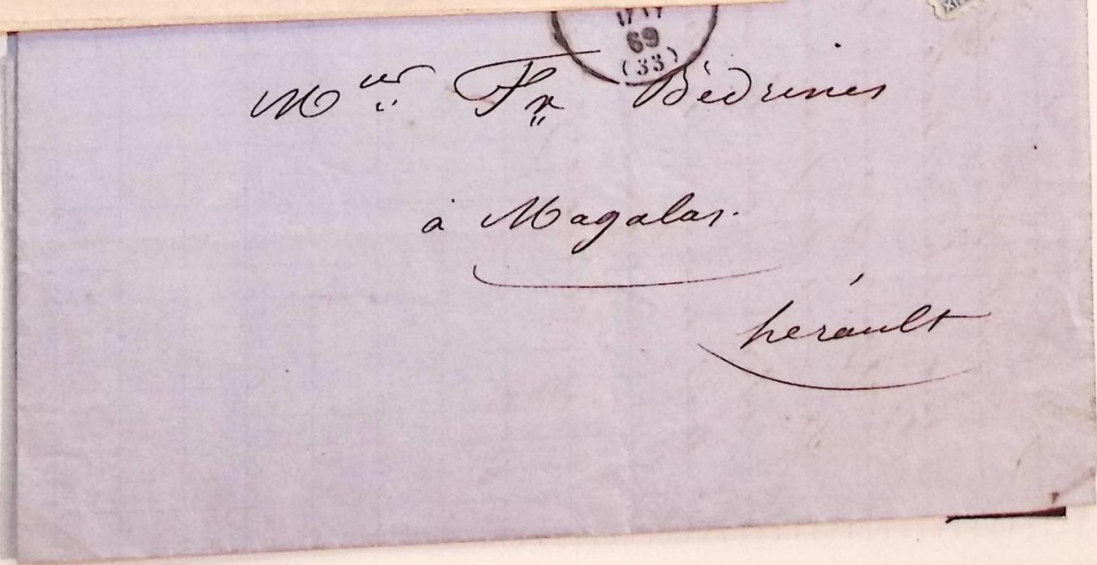 69
(33)
Mʳ Fx Bédrines
à Magalas.
hérault